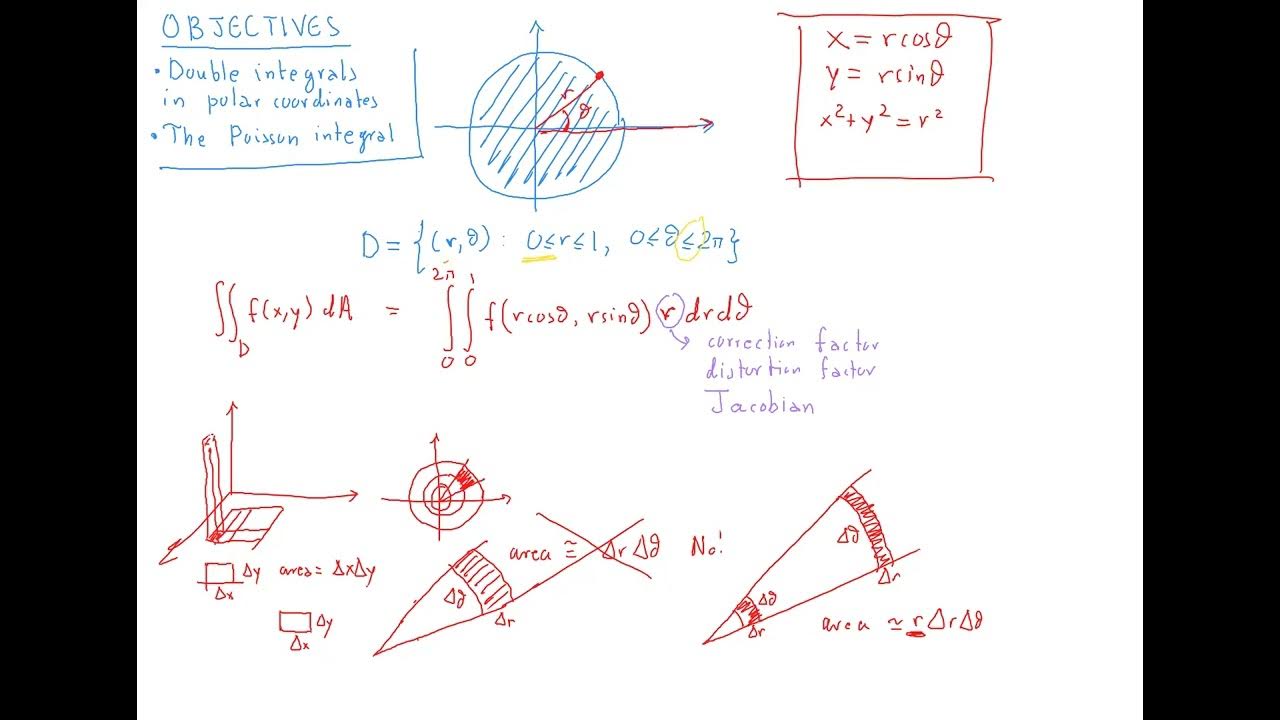 OBJECTIVES
• Double integrals
in polar coordinates
• The Poisson integral
r
ϑ
x = rcosϑ
y = rsinϑ
x² + y² = r²
D = {(r,ϑ) : 0≤r≤1, 0≤ϑ≤2π}
∬_D f(x,y) dA = ∫_0^{2π} ∫_0^1 f(rcosϑ, rsinϑ) r drdϑ
correction factor
distortion factor
Jacobian
Δy area = ΔxΔy
Δx
Δy
Δx
area ≅ ΔrΔϑ No!
Δϑ
Δr
Δϑ
Δr
Δϑ
Δr
area ≃ rΔrΔϑ